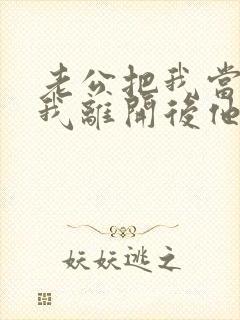 老公把我當
我離開後他
妖妖逃之